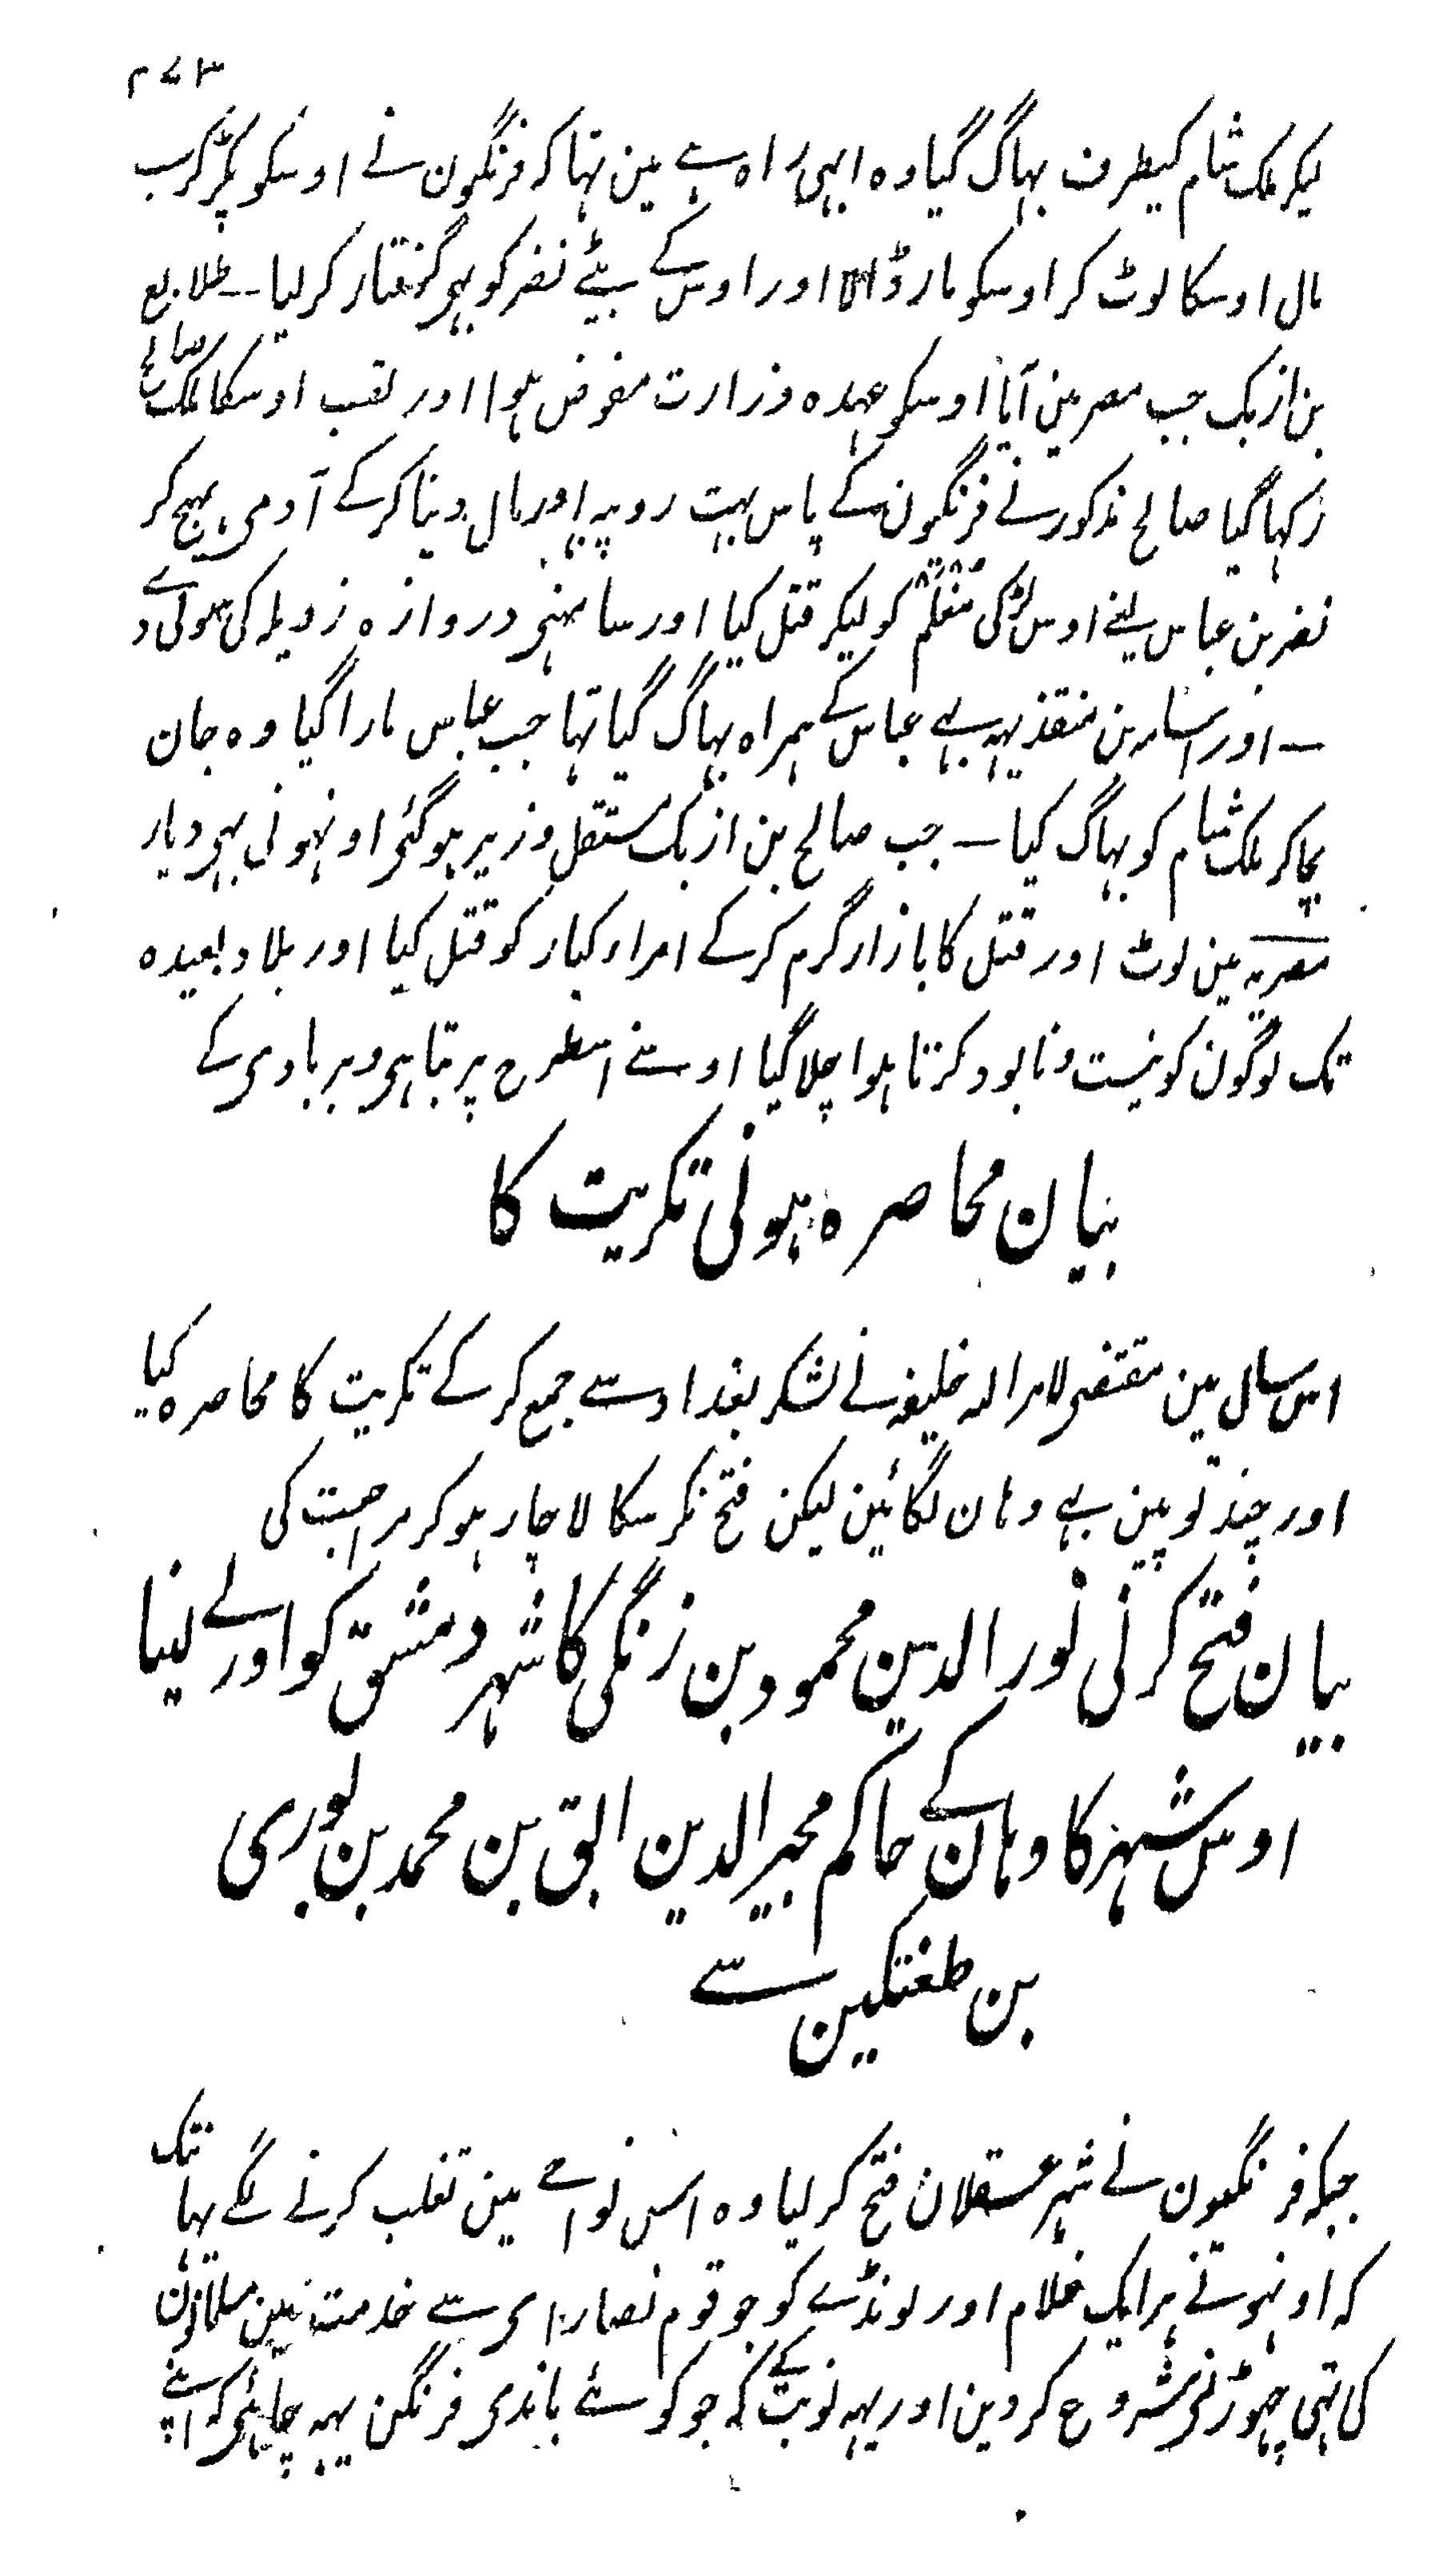 ۳۷۳
لیکر ملک شام کیطرف بہاگ گیا وہ ابہی راہ ہے مین تہا کہ فرنگون نے اوسکو پکڑ کر سب
مال اوسکا لوٹ کر اوسکو مار ڈالا اور اوس کے بیٹے نصر کو بہی گرفتار کر لیا ــ طلایع
بن ازبک جب مصر مین آیا اوسکو عہدہ وزارت مفوض ہوا اور لقب اوسکا ملک صالح
رکہا گیا صالح مذکور نے فرنگون کے پاس بہت روپیہ اور مال دینا کرکے آدمی بہیج کر
نصر بن عباس یعنے اوس لڑکی کو لیکر قتل کیا اور سامہنی دروازہ زویلہ کی سولے دے
ــ اور اسامہ بن منقذ یہہ بہے عباس کے ہمراہ بہاگ گیا تہا جب عباس مارا گیا وہ جان
بچاکر ملک شام کو بہاگ گیا ــ جب صالح بن ازبک مستقل وزیر ہوگئی اونہونی بہی دیار
مصریہ مین لوٹ اور قتل کا بازار گرم کرکے امراء کبار کو قتل کیا اور بلاد بعیدہ
تک لوگون کو نیست و نابود کرتا ہوا چلا گیا اوسنے اسطرح پر تباہی و بربادی کے
بیان محاصرہ ہونی تکریت کا
اس سال مین مقتضی لامر اللہ خلیفہ نے لشکر بغداد سے جمع کرکے تکریت کا محاصرہ کیا
اور چند توپین بہے وہان لگائین لیکن فتح نکر سکا لاچار ہو کر مراجعت کی
بیان فتح کرنی نور الدین محمود بن زنگی کا شہر دمشق کو اور لے لینا
اوس شہر کا وہان کے حاکم مجیر الدین ابق بن محمد بن بوری
بن طغتکین سے
جبکہ فرنگیون نے شہر عسقلان فتح کر لیا وہ اس نواحے مین تغلب کرنے لگے یہانتک
کہ اونہونے ہر ایک غلام اور لونڈے کو جو قوم نصارای سے خدمت مین مسلمانون
کی تہی چہوڑنی شروع کر دین اور یہہ نوبت کے کہ جو کوئے باندی فرنگن یہہ چاہئی کہ اپنے